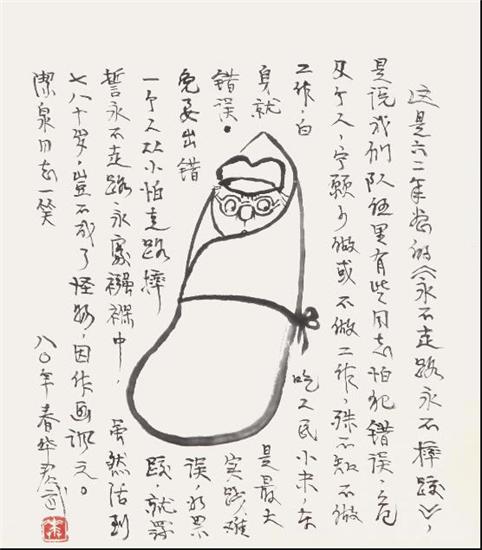 这是六二年的《永不走路永不摔跤》,
是说我们队伍里有些同志怕犯错误,危
及个人,宁愿少做或不做工作,殊不知不做
工作,白吃人民小米,本
身就是最大
错误。实践难
免要出错误,如果
一个人从小怕走路摔跤,就罚
誓永不走路,永裹襁褓中,虽然活到
七八十岁,岂不成了怪物,因作画讽之。
潔泉同志一笑
八〇年春华君武